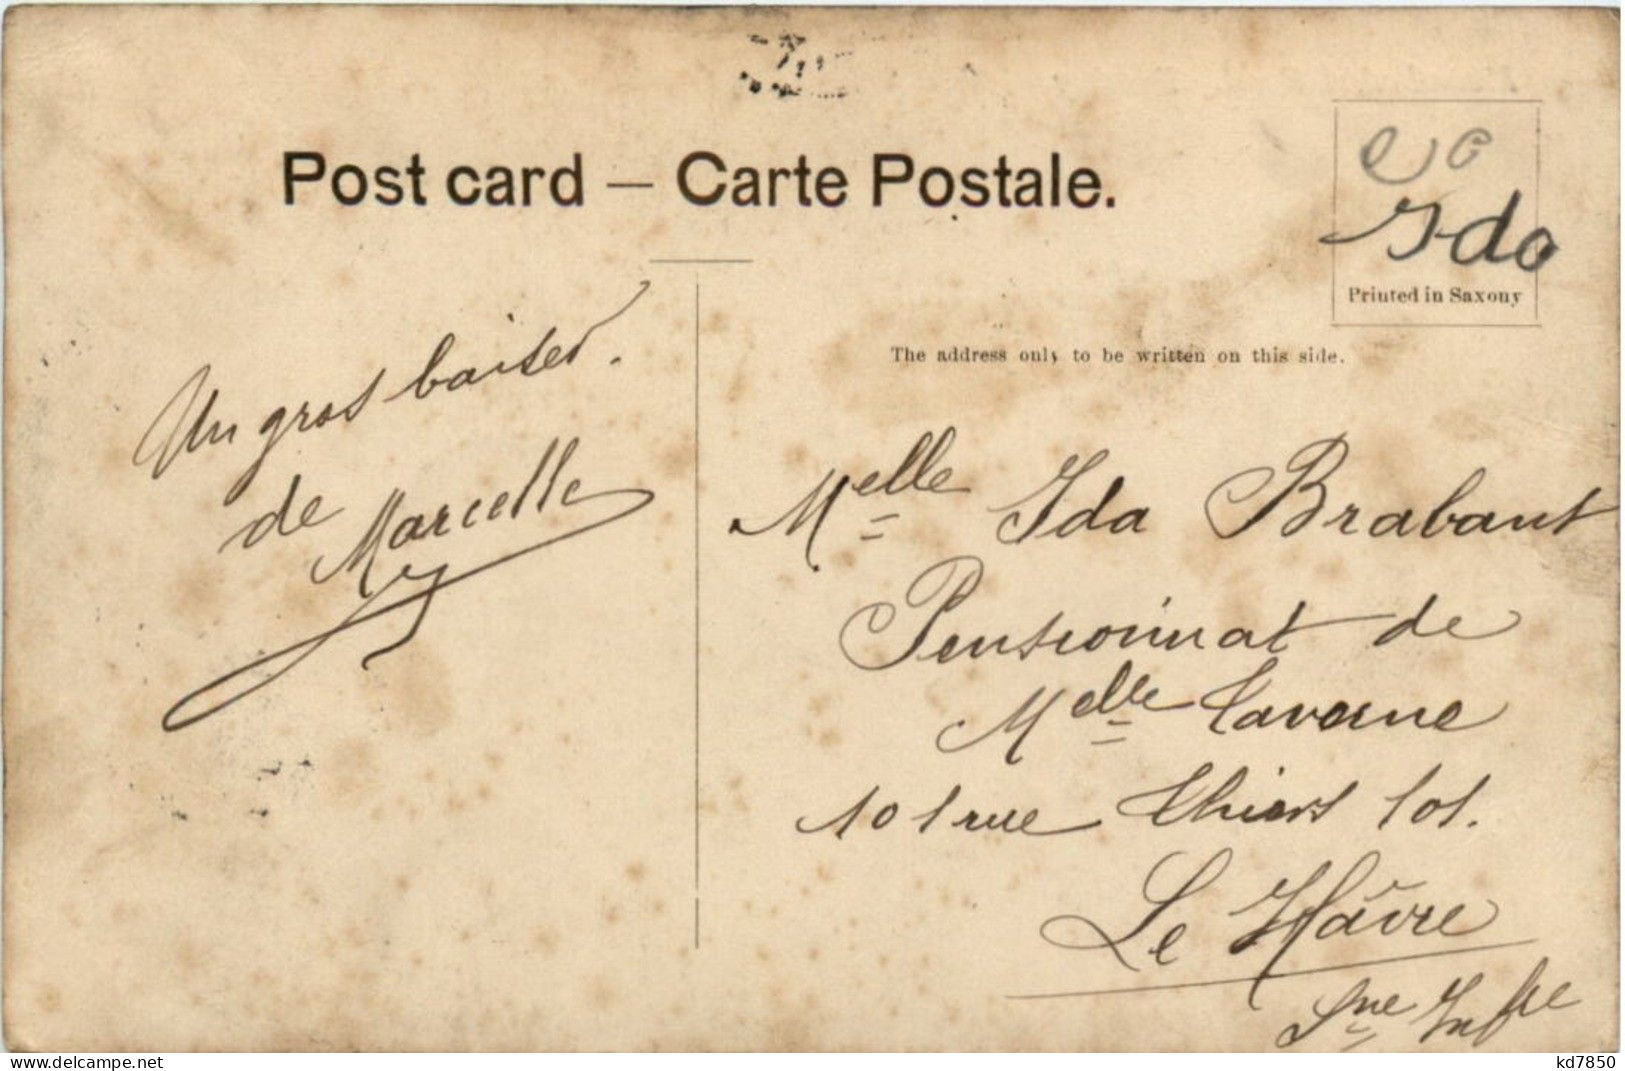 Post card – Carte Postale.
Ida
Printed in Saxony
The address only to be written on this side.
Un gros baiser.
de Marcelle
Melle Ida Brabant
Pensionnat de
Melle Taverne
101 rue Thiers 101.
Le Hâvre
Sne Infre
www.delcampe.net
kd7850